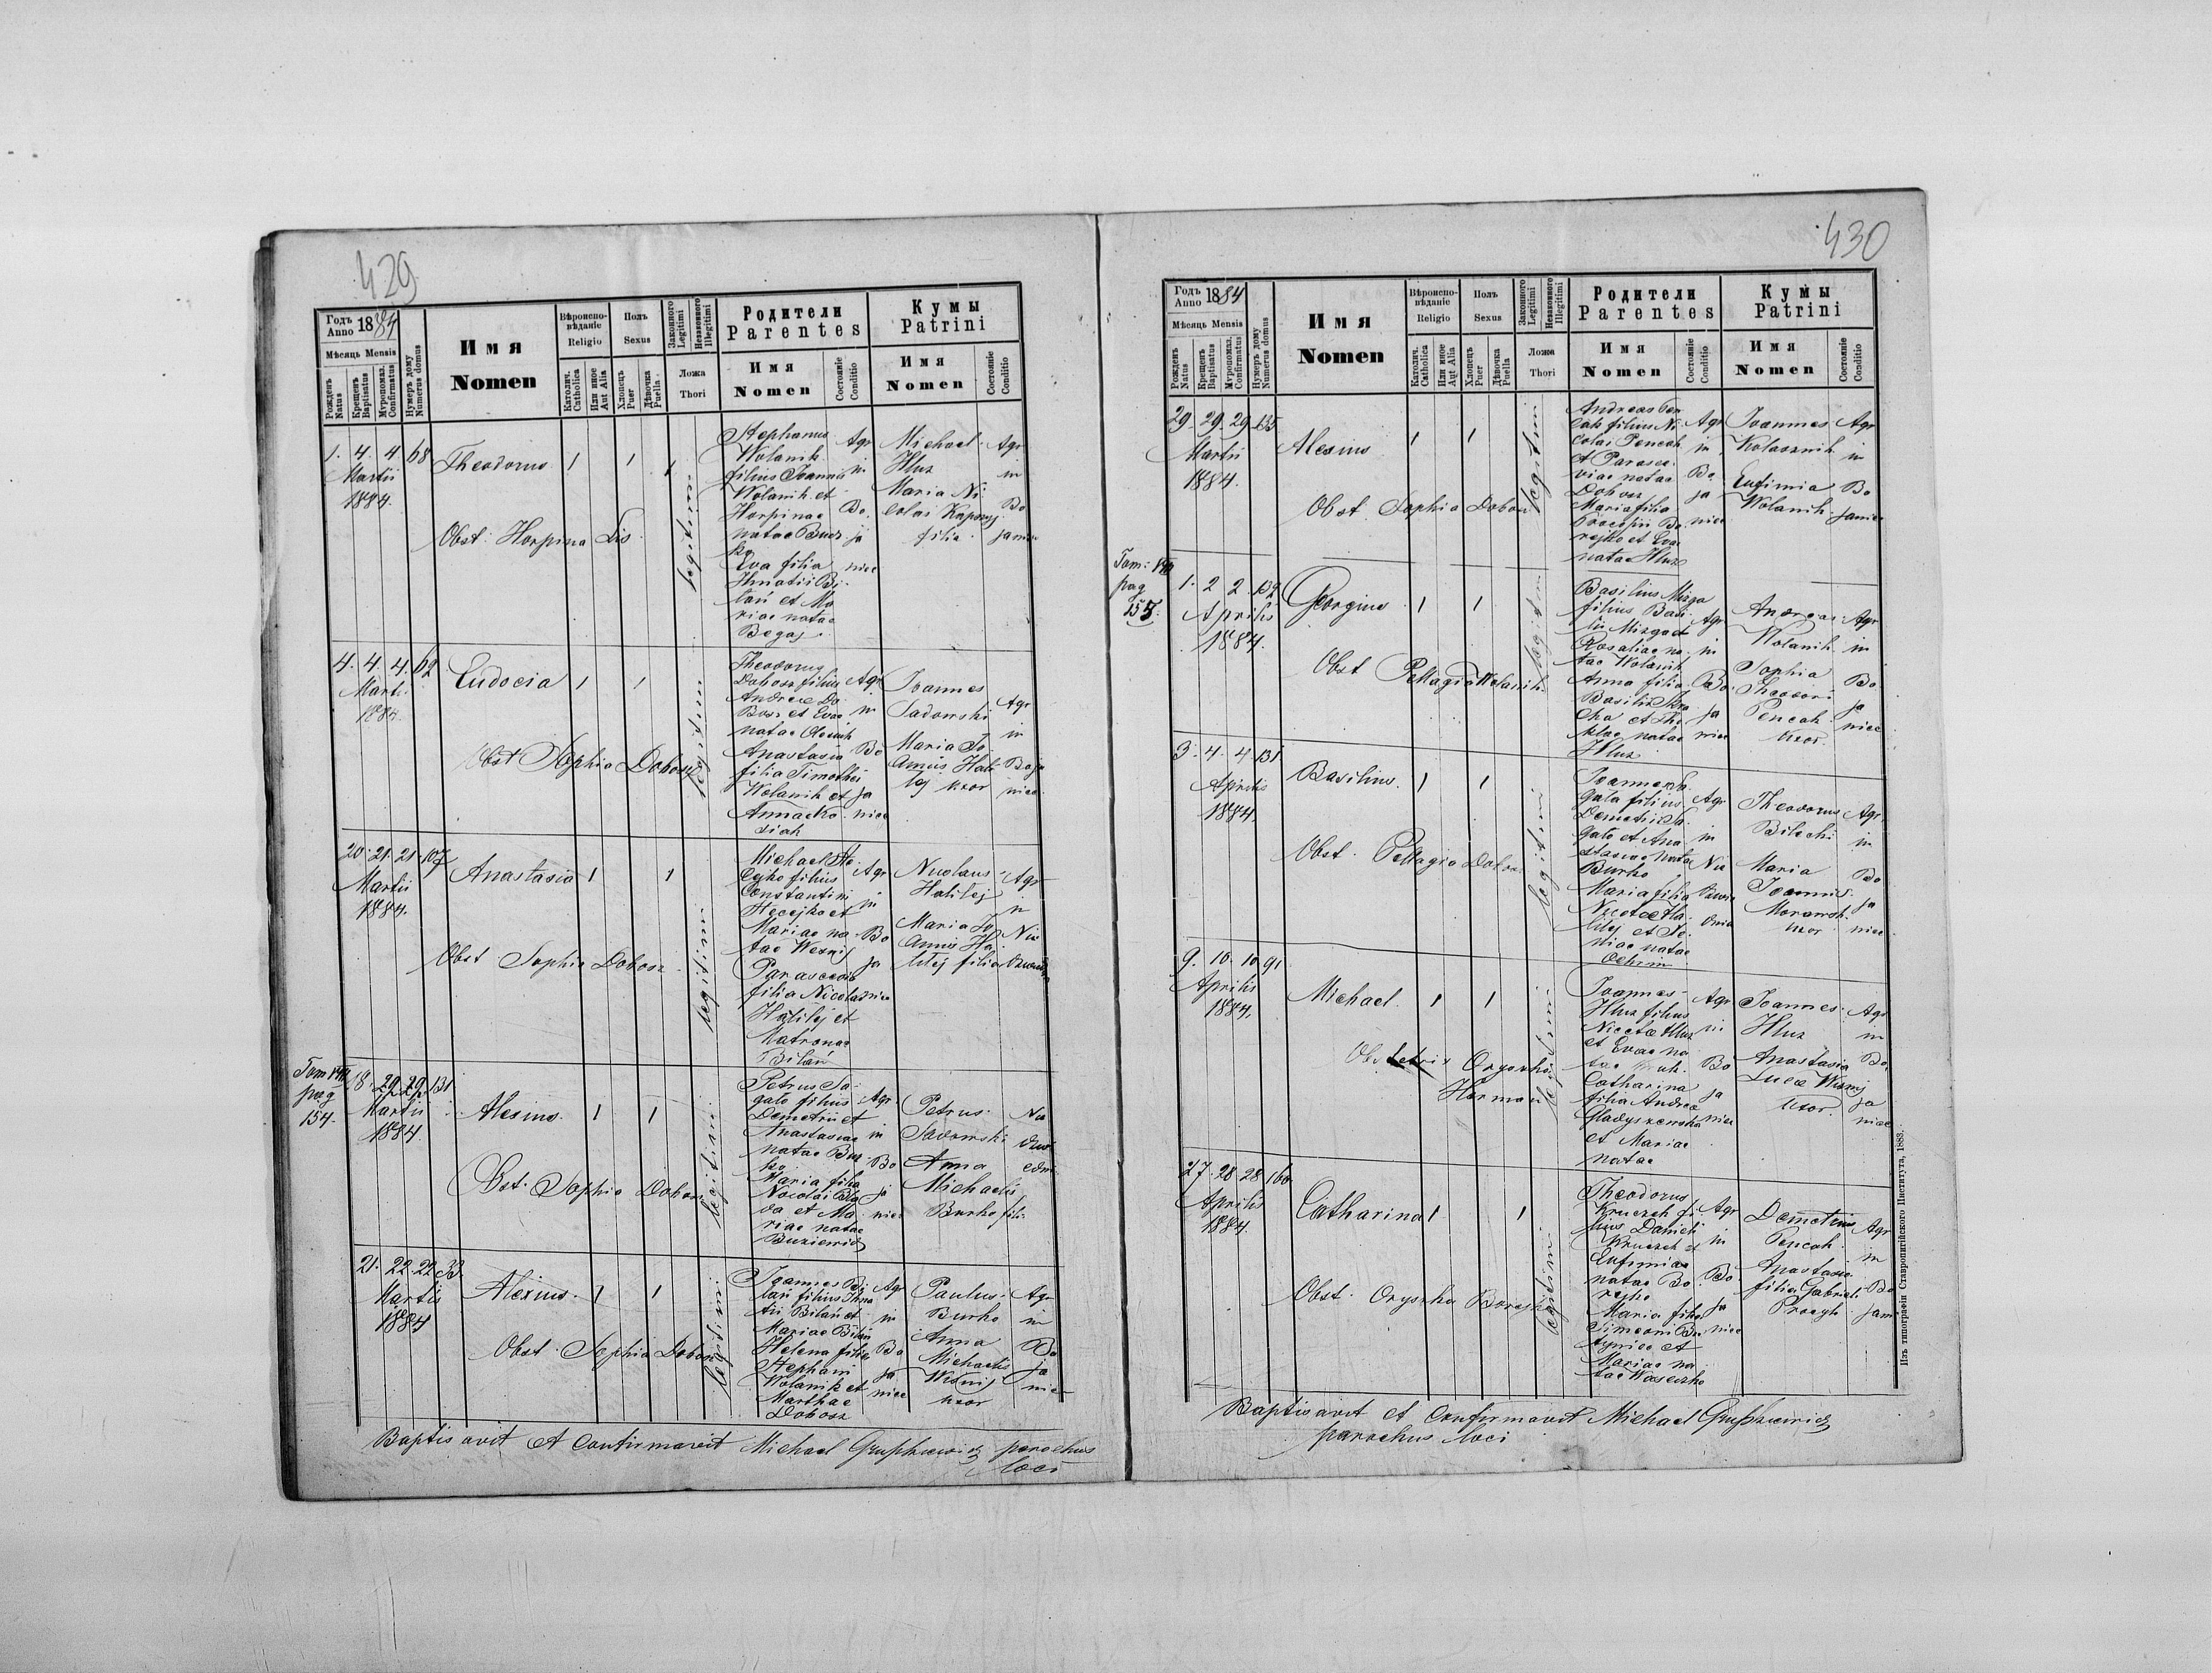 429
Годъ Anno 1884
Мѣсяць Mensis
Рожденъ Natus
Крещенъ Baptisatus
Муропомаз. Confirmatus
Нумеръ дому Numerus domus
Имя Nomen
Вѣроиспо-
вѣданіе
Religio
Католич. Catholica
Или иное Aut Alia
Полъ
Sexus
Хлопецъ Puer
Дѣвочка Puella
Законного Legitimi
Незаконного Illegitimi
Ложа
Thori
Родители
Parentes
Имя
Nomen
Состояніе Conditio
Кумы
Patrini
Имя
Nomen
Состояніе Conditio
1. 4. 4 68
Martii
1884.
Theodorus 1 1 1
Obst: Horpina Lis
legitimi
Stephanus
Wolanik
filius Joannis
Wolanik et
Horpinae
natae Burz
ko
Eva filia
Ihnatii Bi-
lań et Ma
riae natae
Begaj
Agr
in
Bo
ja
nice
Michael
Hluz
Maria Ni
colai Kaposzj
filia
Agr
in
Bo
janice
4. 4. 4. 62
Martii
1884.
Eudocia 1 1
Obst Sophia Dobosz
legitimi
Theodorus
Dobosz filius
Andreae Do
Bosz et Evae
natae
Anastasia
filia Timothei
Wolanik et
Annae Ko
ziak
Agr
in
Bo
ja
nice
Joannes
Sadowski
Maria Jo
annis Hali
lej uxor
Agr
in
Boja
nice
20. 21. 21. 107
Martii
1884.
Anastasia 1 1
Obst Sophia Dobosz
legitimi
Michael He
cejko filius
Constantini
Hecejko et
Mariae na
tae Wexnij
Parascevia
filia Nicolai
Halilej et
Matronae
Bilań
Agr
in
Bo
ja
nice
Nicolaus
Halilej
Maria Jo
annis Ha
lilej filia
Agr
in
Nie
Tom VIII
pag
154.
18. 29 29 131
Martii
1884
Alexius 1 1
Obst. Sophia Dobosz
legitimi
Petrus Sa-
gato filius
Demetrii et
Anastasiae
natae Bur
ko
Maria filia
Nicolai Bla
da et Ma
riae natae
Buziewicz
Agr
in
Bo
ja
nice
Petrus
Sadowski
Anna
Michaelis
Burko filia
21. 22. 22 33
Martii
1884
Alexius 1 1
Obst. Sophia Dobosz
legitimi
Joannes Bi
lań filius Ihna
tii Bilań et
Mariae Bilań
Helena filia
Stephani
Wolanik et
Marthae
Dobosz
Agr
in
Bo
ja
nice
Paulus
Burko
Anna
Michaelis
Wexnij
uxor
Agr
in
Bo
ja
nice
Baptisavit et Confirmavit Michael Gruszkiewicz parochus
loci
430
Годъ Anno 1884
Мѣсяць Mensis
Рожденъ Natus
Крещенъ Baptisatus
Муропомаз. Confirmatus
Нумеръ дому Numerus domus
Имя
Nomen
Вѣроиспо-
вѣданіе
Religio
Католич. Catholica
Или иное Aut Alia
Полъ
Sexus
Хлопецъ Puer
Дѣвочка Puella
Законного Legitimi
Незаконного Illegitimi
Ложа
Thori
Родители
Parentes
Имя
Nomen
Состояніе Conditio
Кумы
Patrini
Имя
Nomen
Состояніе Conditio
29. 29. 29. 135
Martii
1884.
Alexius 1 1
Obst. Sophia Dobosz
legitimi
Andreas Pen
cak filius Ni
colai Pencak
et Parasce
viae natae
Dobosz
Maria filia
Procopii Bo
rejko et Evae
natae Hluz
Agr
in
Bo
ja
nice
Joannes
Kolasznik
Eufimia
Wolanik
Agr
in
Bo
janice
Tom: VIII
pag
155.
1. 2 2. 132
Aprilis
1884.
Georgius 1 1
Obst Pellagia Wolanik
legitimi
Basilius Mizga
filius Basi
lii Mizga et
Rosaliae na
tae Wolanik
Anna filia
Basilii
cka et The
klae natae
Hluz
Agr
in
Bo
ja
nice
Andreas
Wolanik
Sophia
Theodori
Pencak
uxor
Agr
in
Bo
ja
nice
3. 4. 4. 131
Aprilis
1884.
Basilius 1 1
Obst. Pellagia Dobosz
legitimi
Joannes Sa
gata filius
Demetrii Sa
gato et Ana
stasiae natae
Burko
Maria filia
Nicetae Ha
lilej et Xe
niae natae
Agr
in
Nie
Theodorus
Bilecki
Maria
Joannis
Morawski
uxor
Agr
in
Bo
ja
nice
9. 10. 10. 91
Aprilis
1884.
Michael 1 1
Obstetrix Oryszka
Herman
legitimi
Joannes
Hluz filius
Nicetae Hluz
et Evae na
tae
Catharina
filia Andreae
Gladyszewska
et Mariae
natae
Agr
in
Bo
ja
nice
Joannes
Hluz
Anastasia
Lucae Wexnij
uxor
Agr
in
Bo
ja
nice
27. 28. 28 160
Aprilis
1884.
Catharina 1 1
Obst. Oryszka Borejko
legitimi
Theodorus
Kruczek fi
lius Danieli
Kruczek et
Eufimiae
natae Bo
rejko
Maria filia
Simeoni Bu
et
Mariae na
tae Waseczko
Agr
in
Bo
ja
nice
Demetrius
Pencak
Anastasia
filia Gabrieli
Agr
in
Bo
jani
Baptisavit et Confirmavit Michael Gruszkiewicz
parochus loci
Изъ типографіи Ставропигійского Института, 1883.